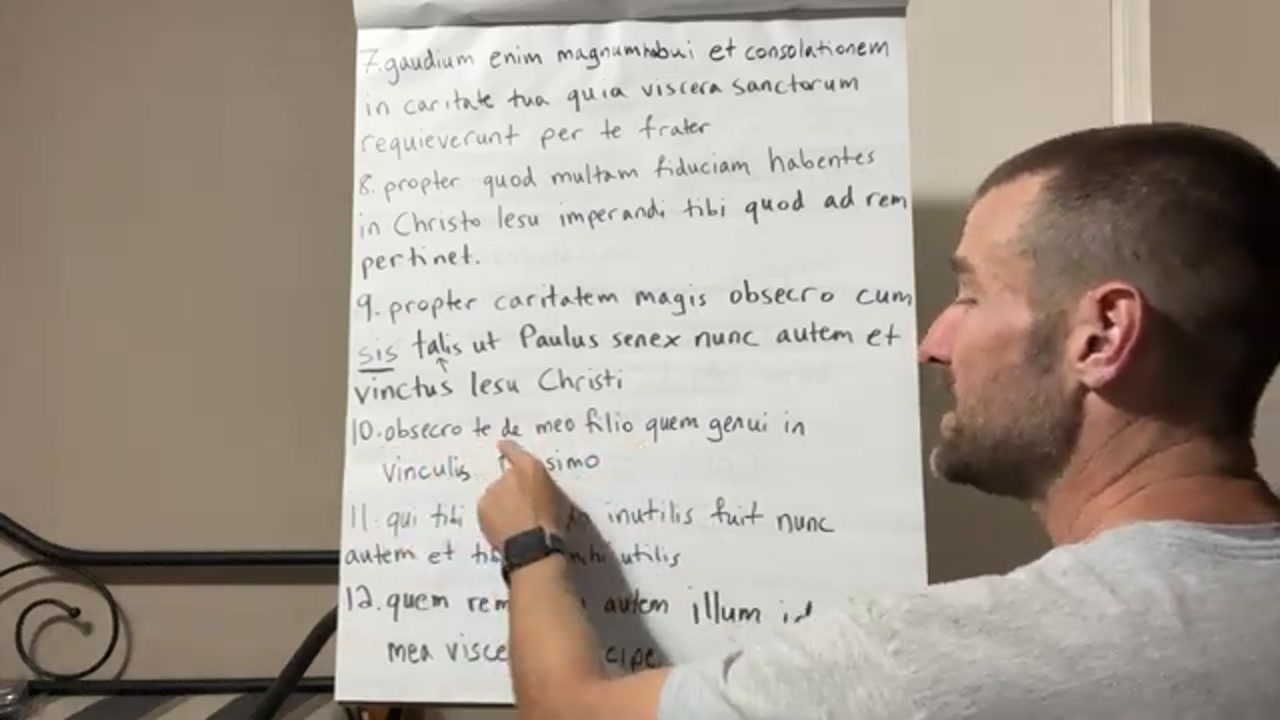 7. gaudium enim magnum habui et consolationem
in caritate tua quia viscera sanctorum
requieverunt per te frater
8. propter quod multam fiduciam habentes
in Christo Iesu imperandi tibi quod ad rem
pertinet.
9. propter caritatem magis obsecro cum
sis talis ut Paulus senex nunc autem et
vinctus Iesu Christi
10. obsecro te de meo filio quem genui in
vinculis simo
11. qui tibi inutilis fuit nunc
autem et utilis
12. quem rem autem illum
mea visce cipe